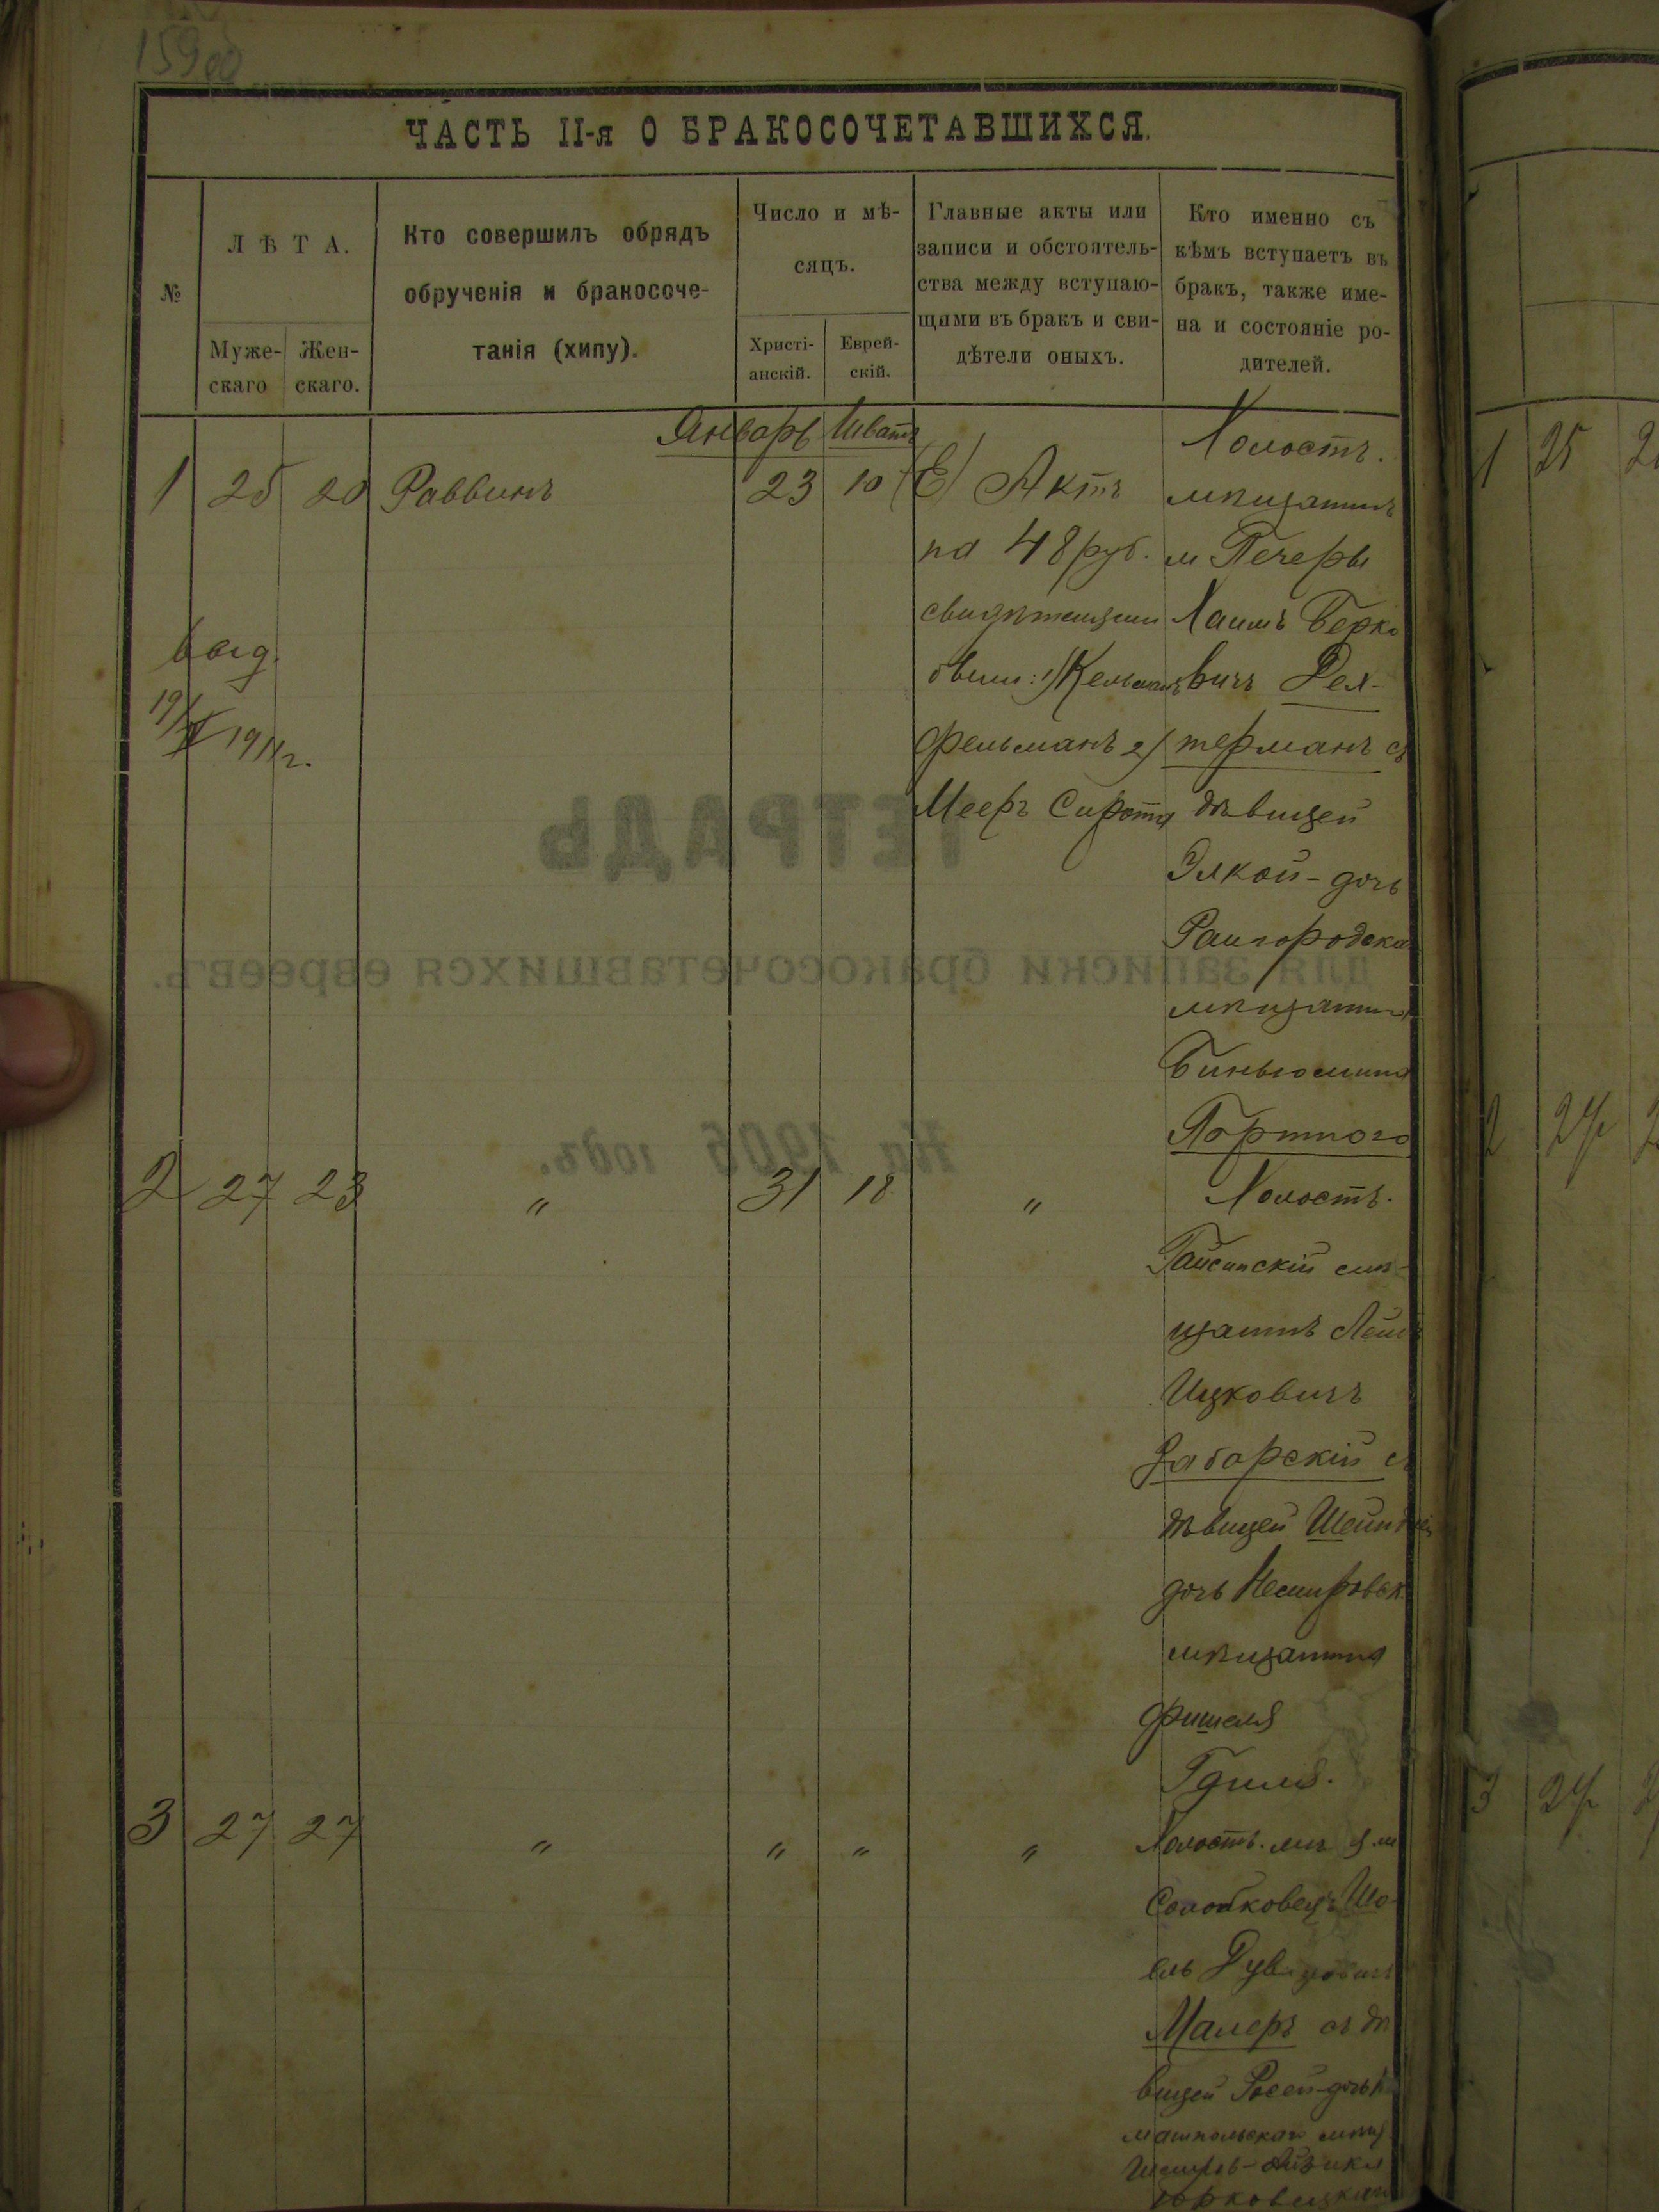 1590
ЧАСТЬ II-я О БРАКОСОЧЕТАВШИХСЯ.
№
ЛѢТА.
Муже-
скаго
Жен-
скаго.
Кто совершилъ обрядъ
обрученія и бракосоче-
танія (хипу).
Число и мѣ-
сяцъ.
Христі-
анскій.
Еврей-
скій.
Главные акты или
записи и обстоятель-
ства между вступаю-
щими въ бракъ и сви-
дѣтели оныхъ.
Кто именно съ
кѣмъ вступаетъ въ
бракъ, также име-
на и состояніе ро-
дителей.
Январь Шватъ
1 25 20 Раввинъ 23 10
выд.
19/V 1911 г.
Актъ
на 48 руб.
свидѣтельств
овали: 1)
Фельманъ 2)
Мееръ Сирота
Холостъ.
мѣщанинъ
м Печеры
Хаимъ Берко
вичъ
терманъ съ
дѣвицей
Элкой - дочь
Райгородска
мѣщанина
Биньомина
Портного
2 27 23 " 31 18 "
Холостъ.
Гайсинскій мѣ-
щанинъ
Ицковичъ
Заборскій съ
дѣвицей Шейндлей
дочь Немировск.
мѣщанина
Фишеля
3 27 27 " " " "
Холостъ.
Солобковецъ Шо-
ель
Малеръ съ дѣ
вицей Росей - дочь
ТЕТРАДЬ
для записки бракосочетавшихся евреевъ.
На 1906 годъ.
1 25
2 27
3 27